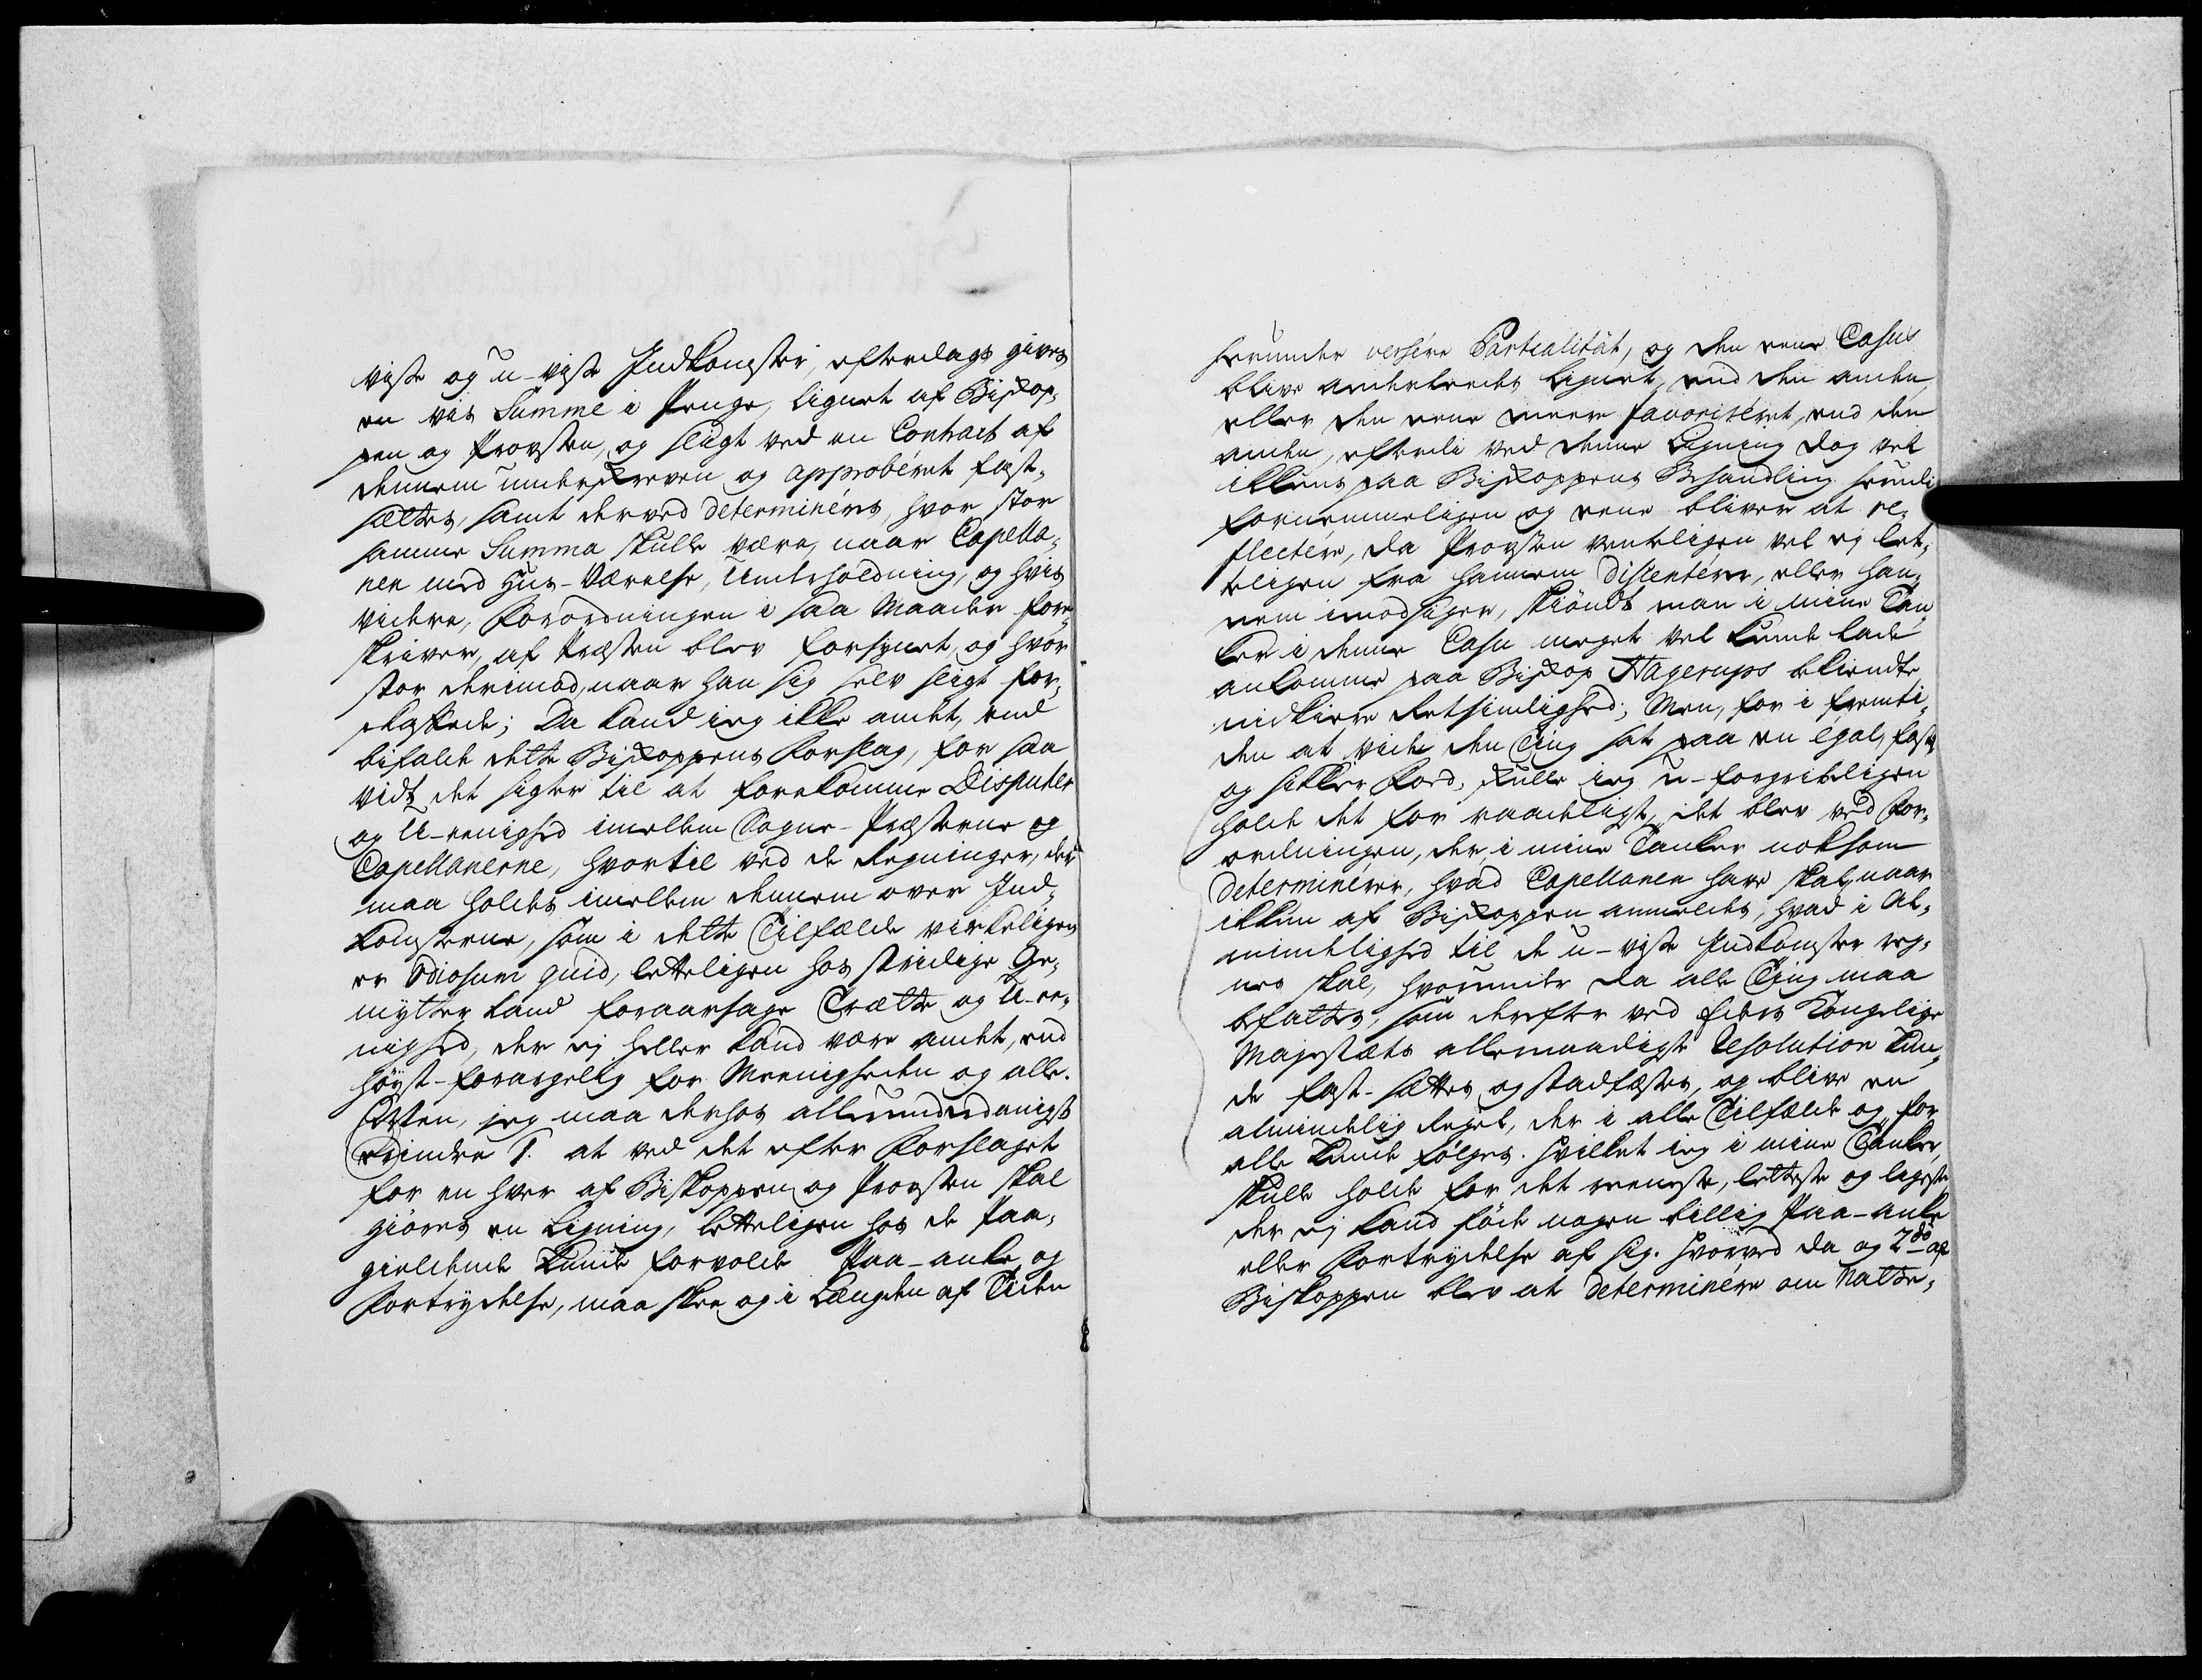 visse og u-visse Indkomster, efterdags gives
en vis Summe i Penge, lignet af Biskop¬
pen og Provsten, og sligt ved en Contract af
dennem underskreven og approbéret fast¬
sættes, samt derved determinéres, hvor stor
samme Summa skulle være, naar Capella¬
nen med Huus-Værelse, Underholdning, og hvis
videre, Forordningen i saa Maader fore¬
skriver, af Præsten blev forsynet, og hvor
stor derimod, naar han sig selv sligt for¬
skaffede; Da kand ieg ikke andet, end
bifalde dette Biskoppens Forslag, for saa
vidt det sigter til at forekomme Disputer
og U-eenighed imellem Sogne-Præsterne og
Capellanerne, hvortil ved de Regninger, der
maa holdes imellem dennem over Ind¬
komsterne, som i dette Tilfælde virkeligen
er Odiosum quid, letteligen hos stridige Ge¬
mytter kand foraarsage Trætte og U-ee¬
nighed, der ej heller kand være andet, end
høyst-forargelig for Meenigheden og alle.
Men, jeg maa derhos allerunderdanigst
erindre 1. at ved det efter Forslaget
for en hver af Biskoppen og Provsten skal
giøres en Ligning, letteligen hos de Paa¬
gieldende kunde forvolde Paa-anke og
Fortrydelse, maa skee og i Længden af Tiden
herunder versére Partialität, og den eene Casus
blive anderledes lignet, end den anden,
eller den eene meere favoriséret, end den
anden, efterdi ved denne Ligning dog vel
ikkuns paa Biskoppens Behandling herudi
fornemmeligen og eene bliver at re¬
flectére, da Provsten venteligen vel ej let¬
teligen fra hannem dissentérer, eller han¬
nem imodsiger, skiøndt man i mine Tan¬
ker i denne Casu meget vel kunde lade
ankomme paa Biskop Hagerups bekiendte
nidkiere Retsindighed; Men, for i Fremti¬
den at vide den Ting sat paa en egal, fast
og sikker Foed, skulle ieg u-forgribeligen
holde det for raadeligt, det blev ved For¬
ordningen, der, i mine Tanker noksom
determinérer, hvad Capellanen have skal, naar
ikkun af Biskoppen anmeldes, hvad i Al¬
mindelighed til de u-visse Indkomster reg¬
nes skal, hvorunder da alle Ting maa
befattes, som derefter ved Eders Kongelige
Majestæts allernaadigste Resolution kun¬
de fast-sættes og stadfæstes, og blive en
almindelig Regel, der i alle Tilfælde og for
alle kunde følges. Hvilket ieg i mine Tanker
skulle holde for det reeneste, letteste og ligeste
der ej kand føde nogen billig Paa-anke
eller Fortrydelse af sig. Hvorved da og 2do af
Biskoppen blev at determinére om Natte¬